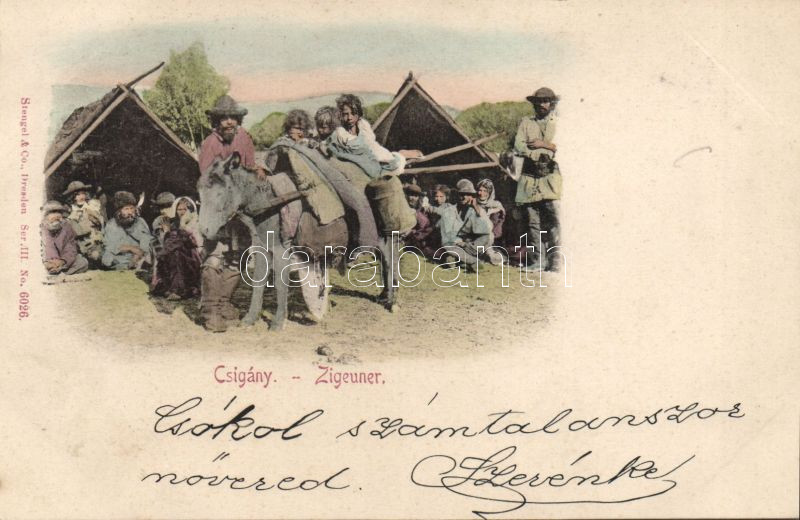 Stengel & Co., Dresden Ser. III. No. 6026.
darabanth
Csigány. - Zigeuner.
Csókol számtalanszor
nővered. Szerénke